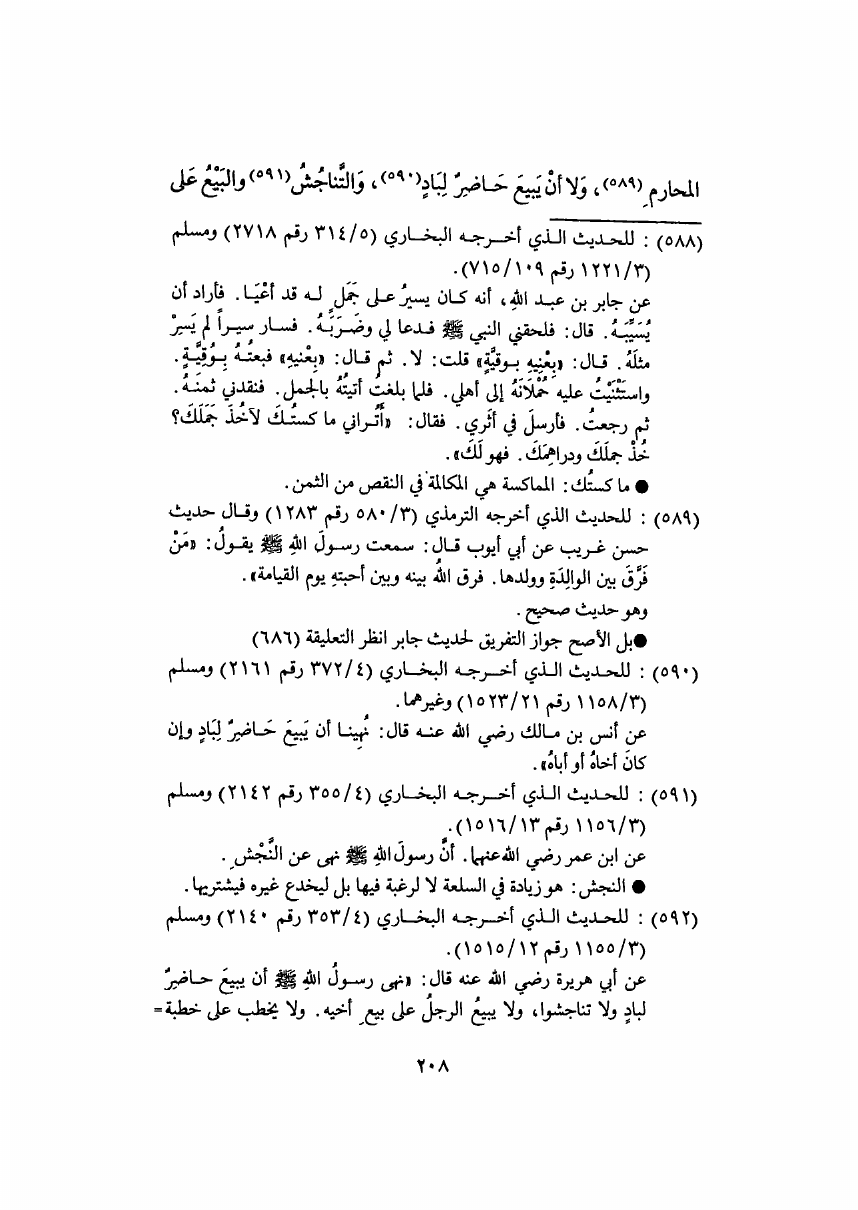 المحارمِ(٥٨٩)، وَلا أنْ يَبيعَ حَـاضِرٌ لِبَادٍ(٥٩٠)، وَالتَّناجُشُ(٥٩١) والبَيْعُ عَلى
(٥٨٨) : للحـديث الـذي أخـرجـه البخـاري (٣١٤/٥ رقم ٢٧١٨) ومسلم
(١٢٢١/٣ رقم ٧١٥/١٠٩).
عن جابر بن عبـد اللهِ، أنه كـان يسيرُ عـلى جَمَلٍ لـه قد أعْيَـا. فأراد أن
يُسَيِّبَـهُ. قال: فلحقني النبي ﷺ فـدعا لي وضَـرَبَـهُ. فسـار سيـراً لم يَسِرْ
مثلَهُ. قـال: «بِعْنِيهِ بـوقيَّةٍ» قلت: لا. ثم قـال: «بِعْنيهِ» فبعتُـهُ بِـوُقِيَّـةٍ.
واستَثْنَيْتُ عليه حُمْلَانَهُ إلى أهلي. فلما بلغتُ أتيتُهُ بالجمل. فنقدني ثمنَـهُ.
ثم رجعتُ. فأرسلَ في أثَري. فقال: «أتُـراني ما كستُـكَ لآخُذَ جَمَلَكَ؟
خُذْ جملَكَ ودراهِمَكَ. فهو لَكَ».
● ما كستُك: المماكسة هي المكالمة في النقص من الثمن.
(٥٨٩) : للحديث الذي أخرجه الترمذي (٥٨٠/٣ رقم ١٢٨٣) وقـال حديث
حسن غـريب عن أبي أيوب قـال: سمعت رسـولَ اللهِ ﷺ يقـولُ: «مَنْ
فَرَّقَ بين الوالِدَةِ وولدها. فرق اللهُ بينه وبين أحبتهِ يوم القيامة».
وهو حديث صحيح.
●بل الأصح جواز التفريق لحديث جابر انظر التعليقة (٦٨٦)
(٥٩٠) : للحـديث الـذي أخـرجـه البخـاري (٣٧٢/٤ رقم ٢١٦١) ومسلم
(١١٥٨/٣ رقم ١٥٢٣/٢١) وغيرهما.
عن أنس بن مـالك رضي الله عنـه قال: نُهِينـا أن يَبيعَ حَـاضِرٌ لِبَادٍ وإن
كانَ أخاهُ أو أباهُ».
(٥٩١) : للحـديث الـذي أخـرجـه البخـاري (٣٥٥/٤ رقم ٢١٤٢) ومسلم
(١١٥٦/٣ رقم ١٥١٦/١٣).
عن ابن عمر رضي الله عنهما. أنَّ رسولَ اللهِ ﷺ نهى عن النَّجْشِ.
● النجش: هو زيادة في السلعة لا لرغبة فيها بل ليخدع غيره فيشتريها.
(٥٩٢) : للحـديث الـذي أخـرجـه البخـاري (٣٥٣/٤ رقم ٢١٤٠) ومسلم
(١١٥٥/٣ رقم ١٥١٥/١٢).
عن أبي هريرة رضي الله عنه قال: «نهى رسـولُ اللهِ ﷺ أن يبيعَ حـاضِرٌ
لبادٍ ولا تناجشوا، ولا يبيعُ الرجلُ على بيعِ أخيه. ولا يخطب على خطبة=
٢٠٨